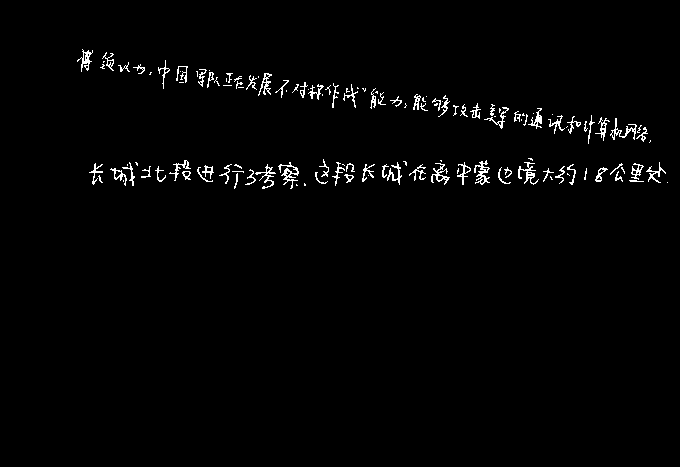 博须以为，中国军队正在发展不对称作战”能力，能够攻击美军的通讯和计算机网络，
长城北段进行了考察．这段长城在离中蒙边境大约18公里处．